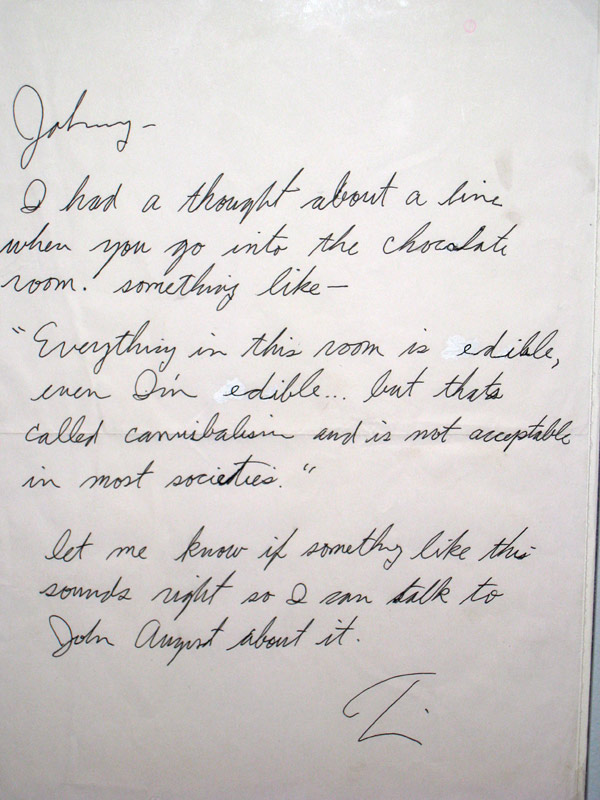 Johnny—
I had a thought about a line
when you go into the chocolate
room. something like—
"Everything in this room is edible,
even I'm edible... but thats
called cannibalism and is not acceptable
in most societies."
let me know if somethg like this
sounds right so I can talk to
John August about it.